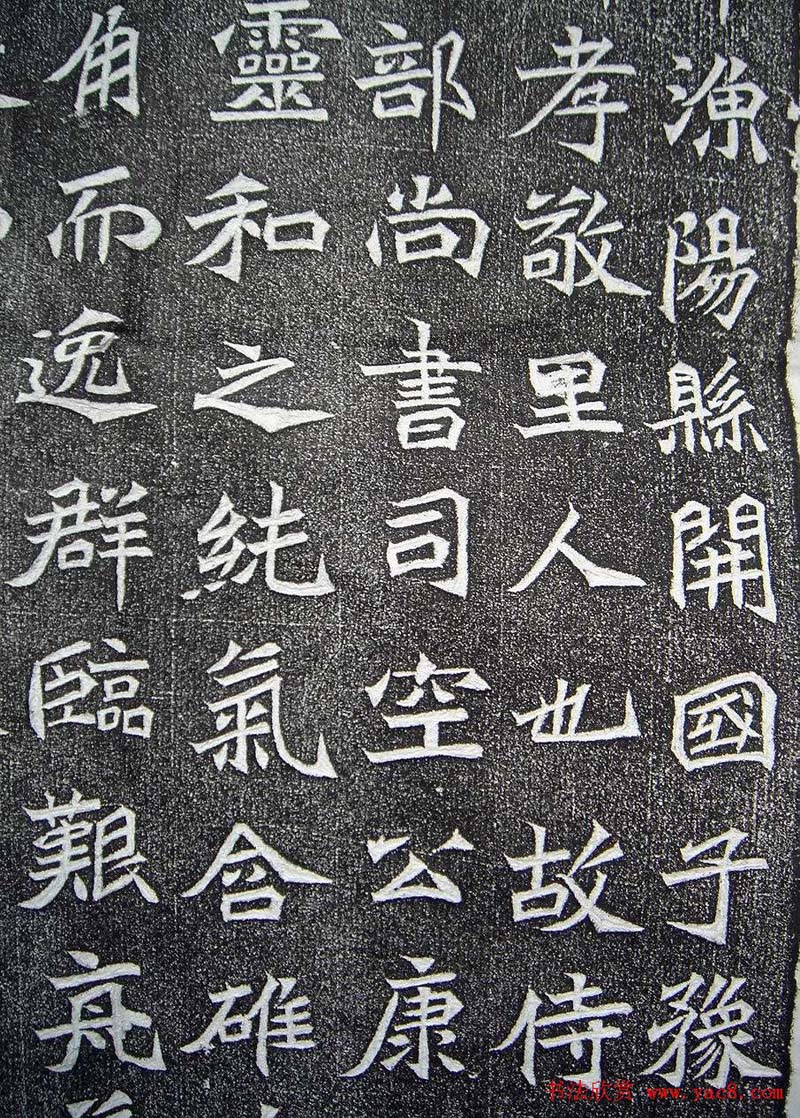 漁陽縣開國子豫
孝敬里人也故侍
部尚書司空公康
靈和之純氣含確
角而逸群臨艱
书法欣赏 www.yac8.com